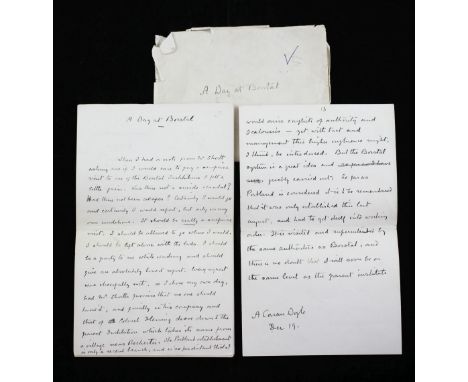 A Day at Borstal
A Day at Borstal
When I had a note from Mr Shutt
asking me if I would care to pay a surprise
visit to one of the Borstal Institutions I felt a
little grim. Was this not a weird
Had this not been
and certainly I would report, but only on my
own conditions. It should be really a surprise
visit. I should be allowed to go where I would.
I should be left alone with the lads. I should
be a party to no white washing and should
give an absolutely honest report.
was cheerfully met, so I chose my own day,
had Mr Shutt's promise that no one should
be warned, and finally in his company and
that of Colonel Fleming drove down to the
parent Institution which takes its name from
a village near Rochester. The Portland establishment
is only a recent branch, and is so
13
would arise conflicts of authority and
jealousies — yet with tact and
management this higher influence might,
I think, be introduced. But the Borstal
system is a great idea and
greatly carried out. So far as
Portland is concerned it is to be remembered
that it was only established this last
August, and had to get itself into working
order. It is visited and superintended by
the same authorities as Borstal, and
there is no doubt that it will soon be on
the same level as the parent institute
A Conan Doyle
Dec 19.